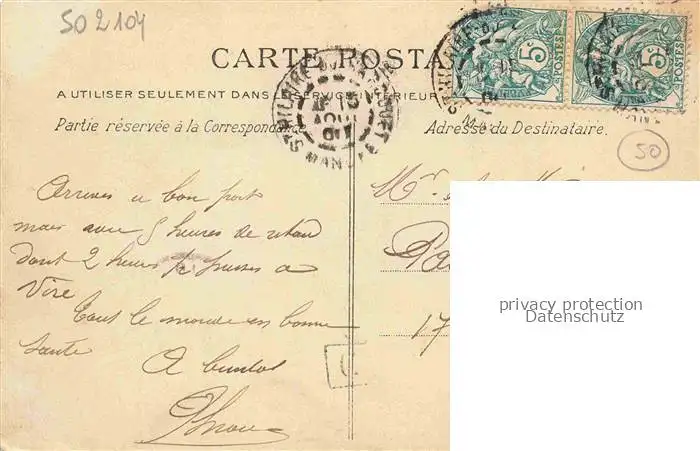 502104
CARTE POSTA
A UTILISER SEULEMENT DANS LE SERVICE INTÉRIEUR
Partie réservée à la Correspondance
Adresse du Destinataire.
50
5c 5c
POSTES POSTES
ST HILAIRE
MANCHE
Mr
Pa
17
Arrives a bon port
mais avec 5 heures de retard
dont 2 heures passees a
Vire
Tout le monde en bonne
sante
A bientot
privacy protection
Datenschutz